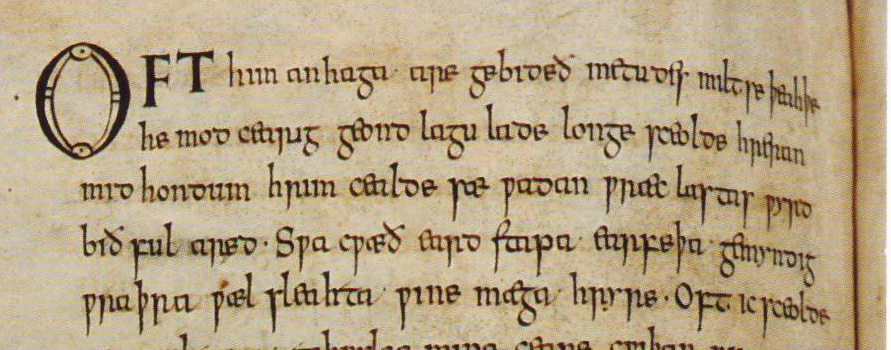 OFT him anhaga are gebideð metudes miltse þeahþe
he modcearig geond lagu lade longe sceolde hreran
mid hondum hrim cealde sæ wadan wræc lastas wyrd
bið ful aræd. Swa cwæð eard stapa earfeþa gemyndig
wraþra wæl sleahta wine mæga hryre. Oft ic sceolde